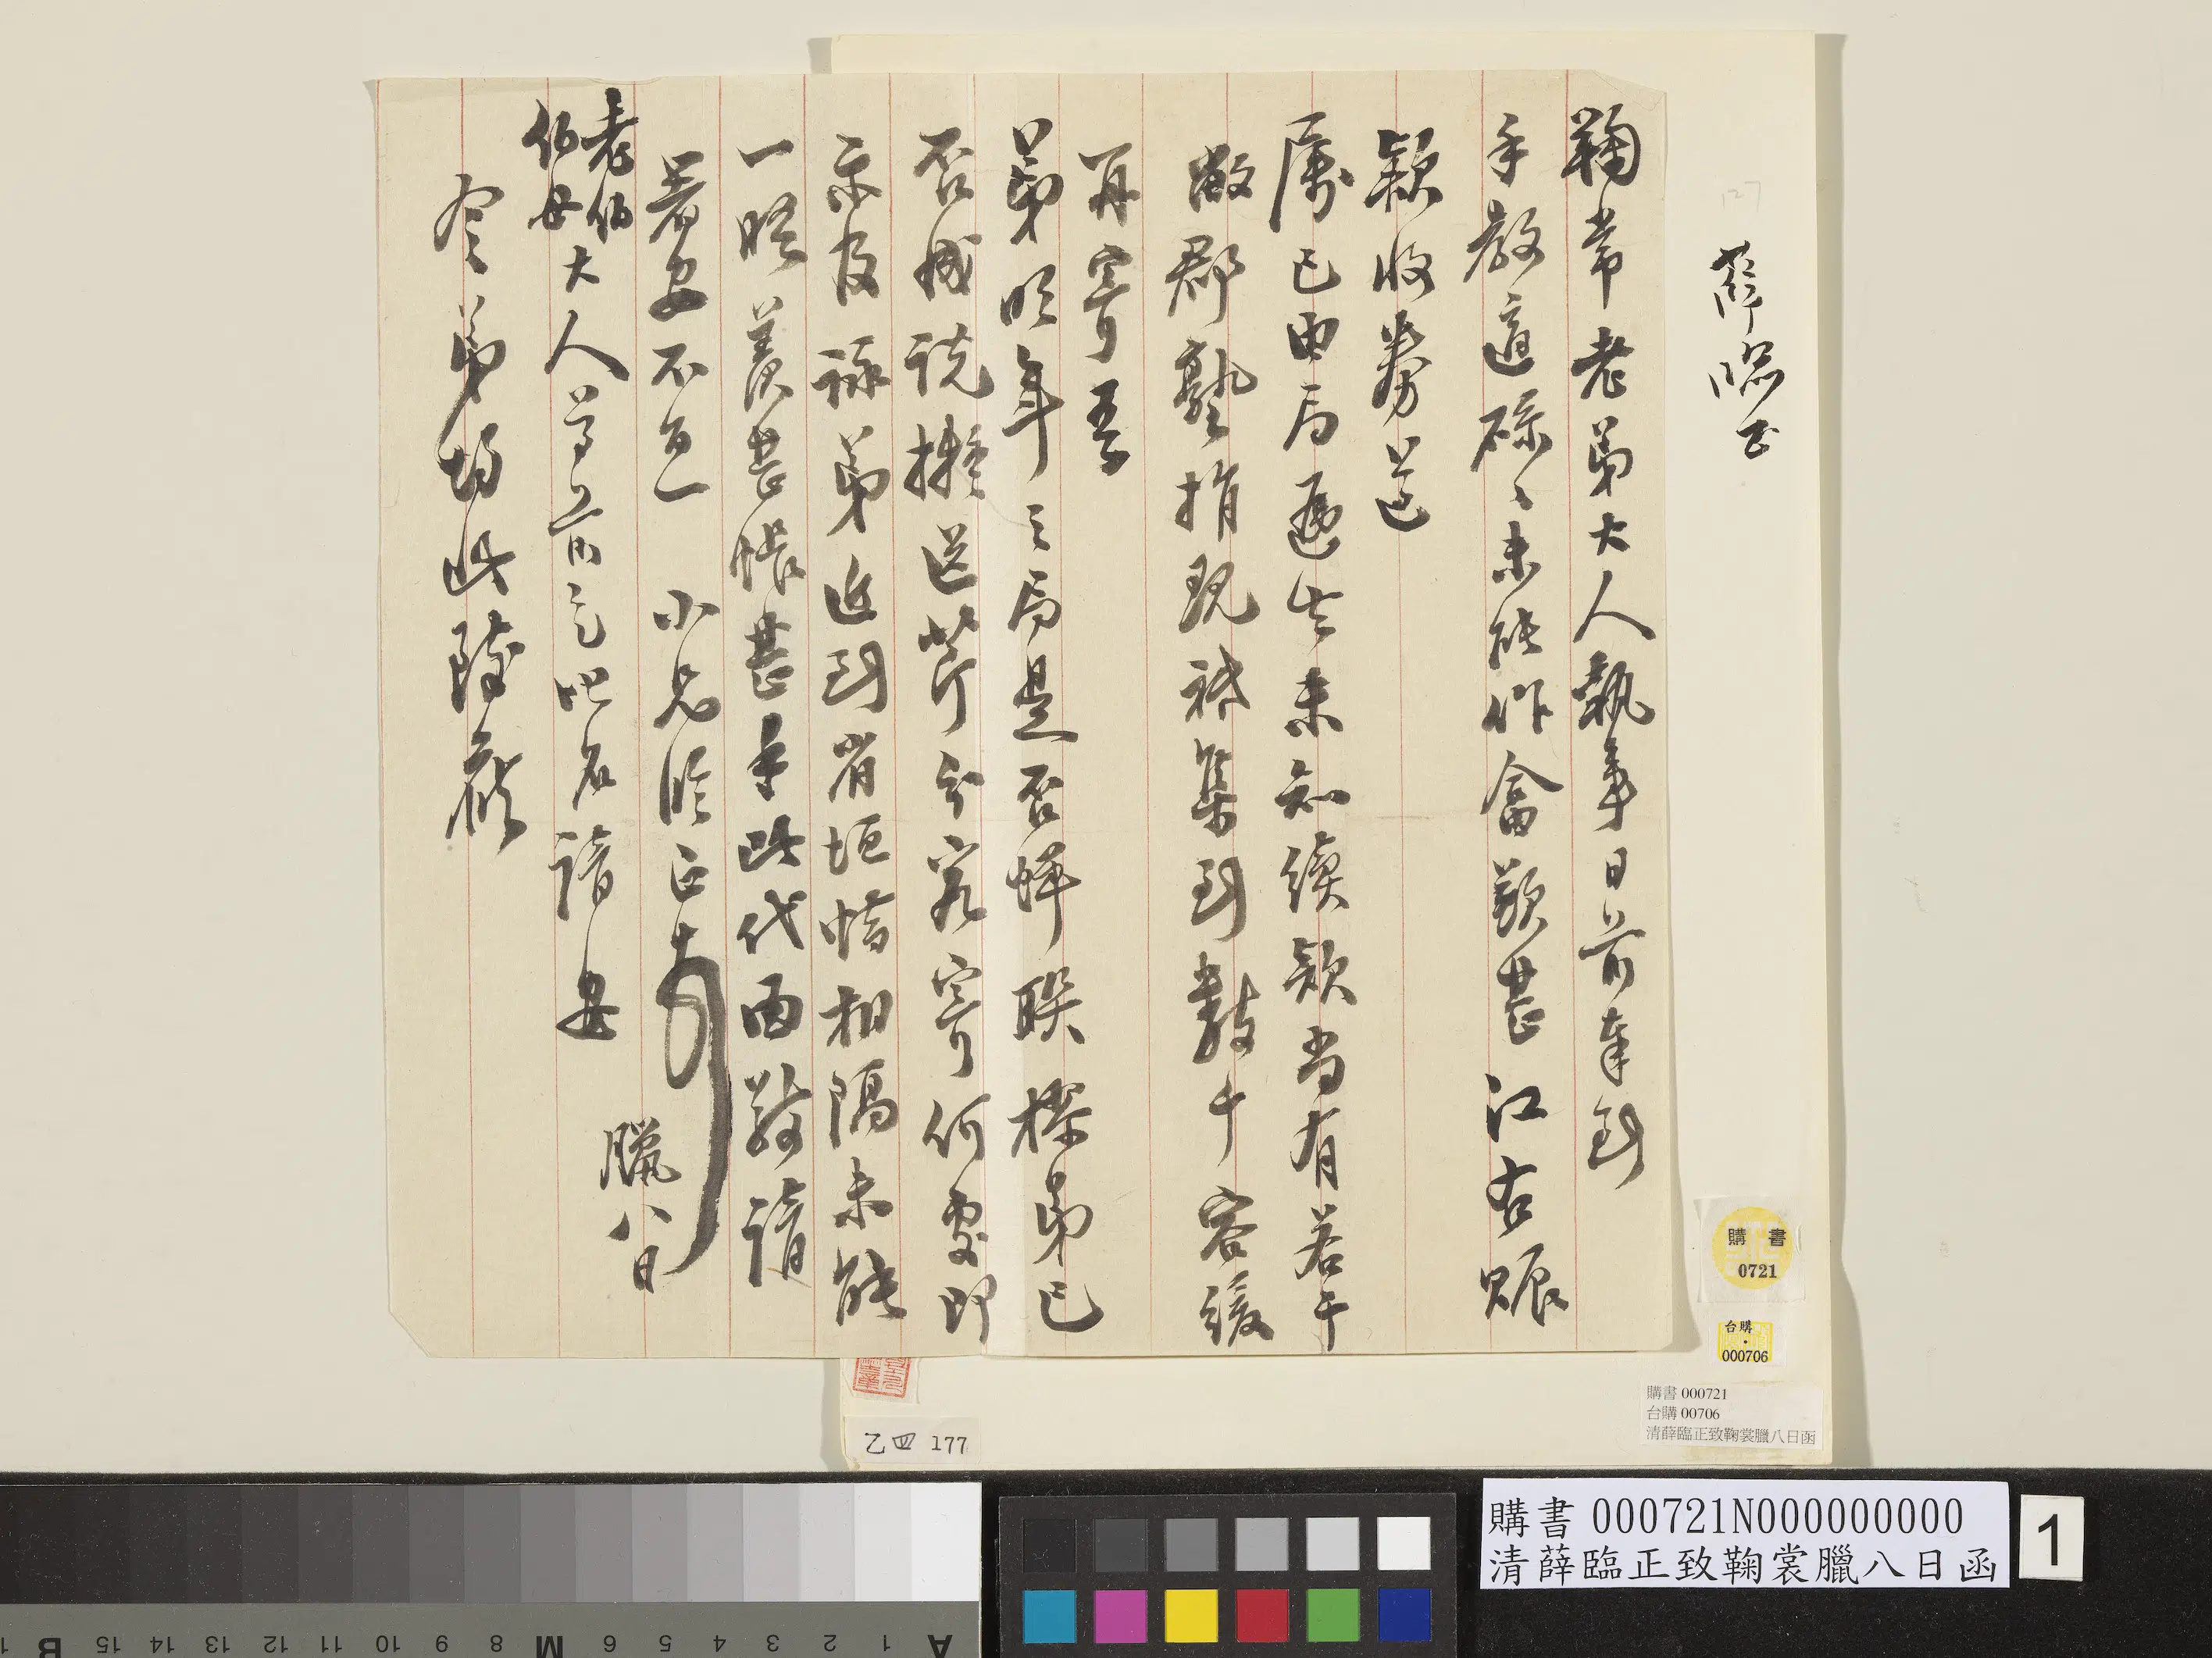 薛臨正
127
鞠常老弟大人執事日前奉到
手教適碌々未能作畣歉甚江右賑
款收券並
屬已由局遞去未知續款尚有若干
敝郡塾捐現祗集到數千容緩
再寄吾
弟明年之局是否蟬聯樑弟已
否撼說擬送芹分宛寄何處即
示及祿弟近到省垣惜相隔未能
一晤羨甚悵甚手此代面敬請
著安不一 小兄臨正頓首
臘八日
老伯
伯母大人尊前乞叱名請安
令弟均此致候
購書
0721
台購
000706
購書 000721
台購 00706
清薛臨正致鞠裳臘八日函
乙四 177
購書 000721N000000000
清薛臨正致鞠裳臘八日函
1
A 1 2 3 4 5 6 M 8 9 10 11 12 13 14 15 B